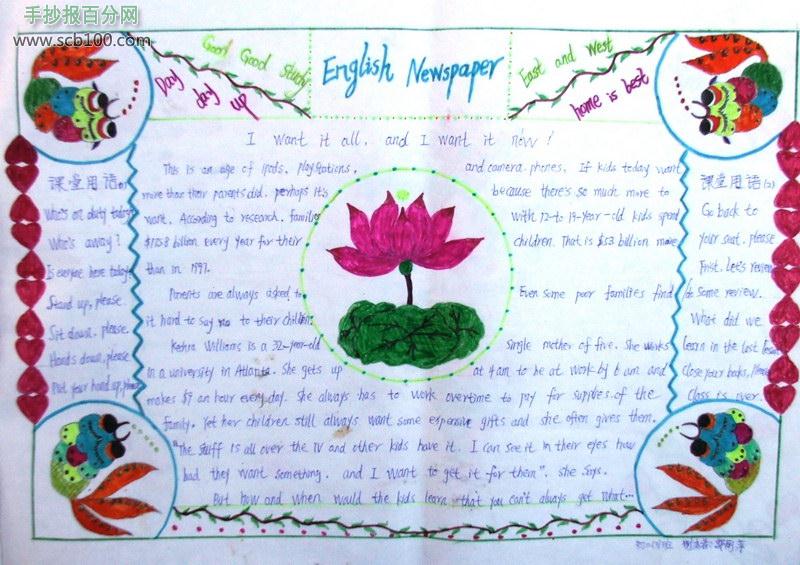 手抄报百分网
www.scb100.com
Good Good Study
Day day up
English Newspaper
East and West
home is best
I want it all, and I want it now!
课堂用语(1)
Who's on duty today
Who's away?
Is everyone here today?
Stand up, please.
Sit down, please.
Hands down, please
Put your hand up, please
This is an age of ipods, playstations, and camera-phones. If kids today want
more than their parents did, perhaps it's because there's so much more to
want. According to research, families with 12-to 19-year-old kids spend
billion every year for their children. That is $53 billion more
than in 1997.
Parents are always asked to Even some poor families find
it hard to say no to their children.
Williams is a 32-year-old single mother of five. She works
in a university in Atlanta. She gets up at 4 am to be at work by 6 am and
makes $9 an hour every day. She always has to work overtime to pay for supplies of the
family. Yet her children still always want some expensive gifts and she often gives them.
"The stuff is all over the TV and other kids have it. I can see it in their eyes how
bad they want something, and I want to get it for them", she says.
But how and when would the kids learn that you can't always get what...
课堂用语(2)
Go back to
your seat, please
Frist, Let's review
do some review.
What did we
learn in the last lesson
Close your books, please
Class is over.